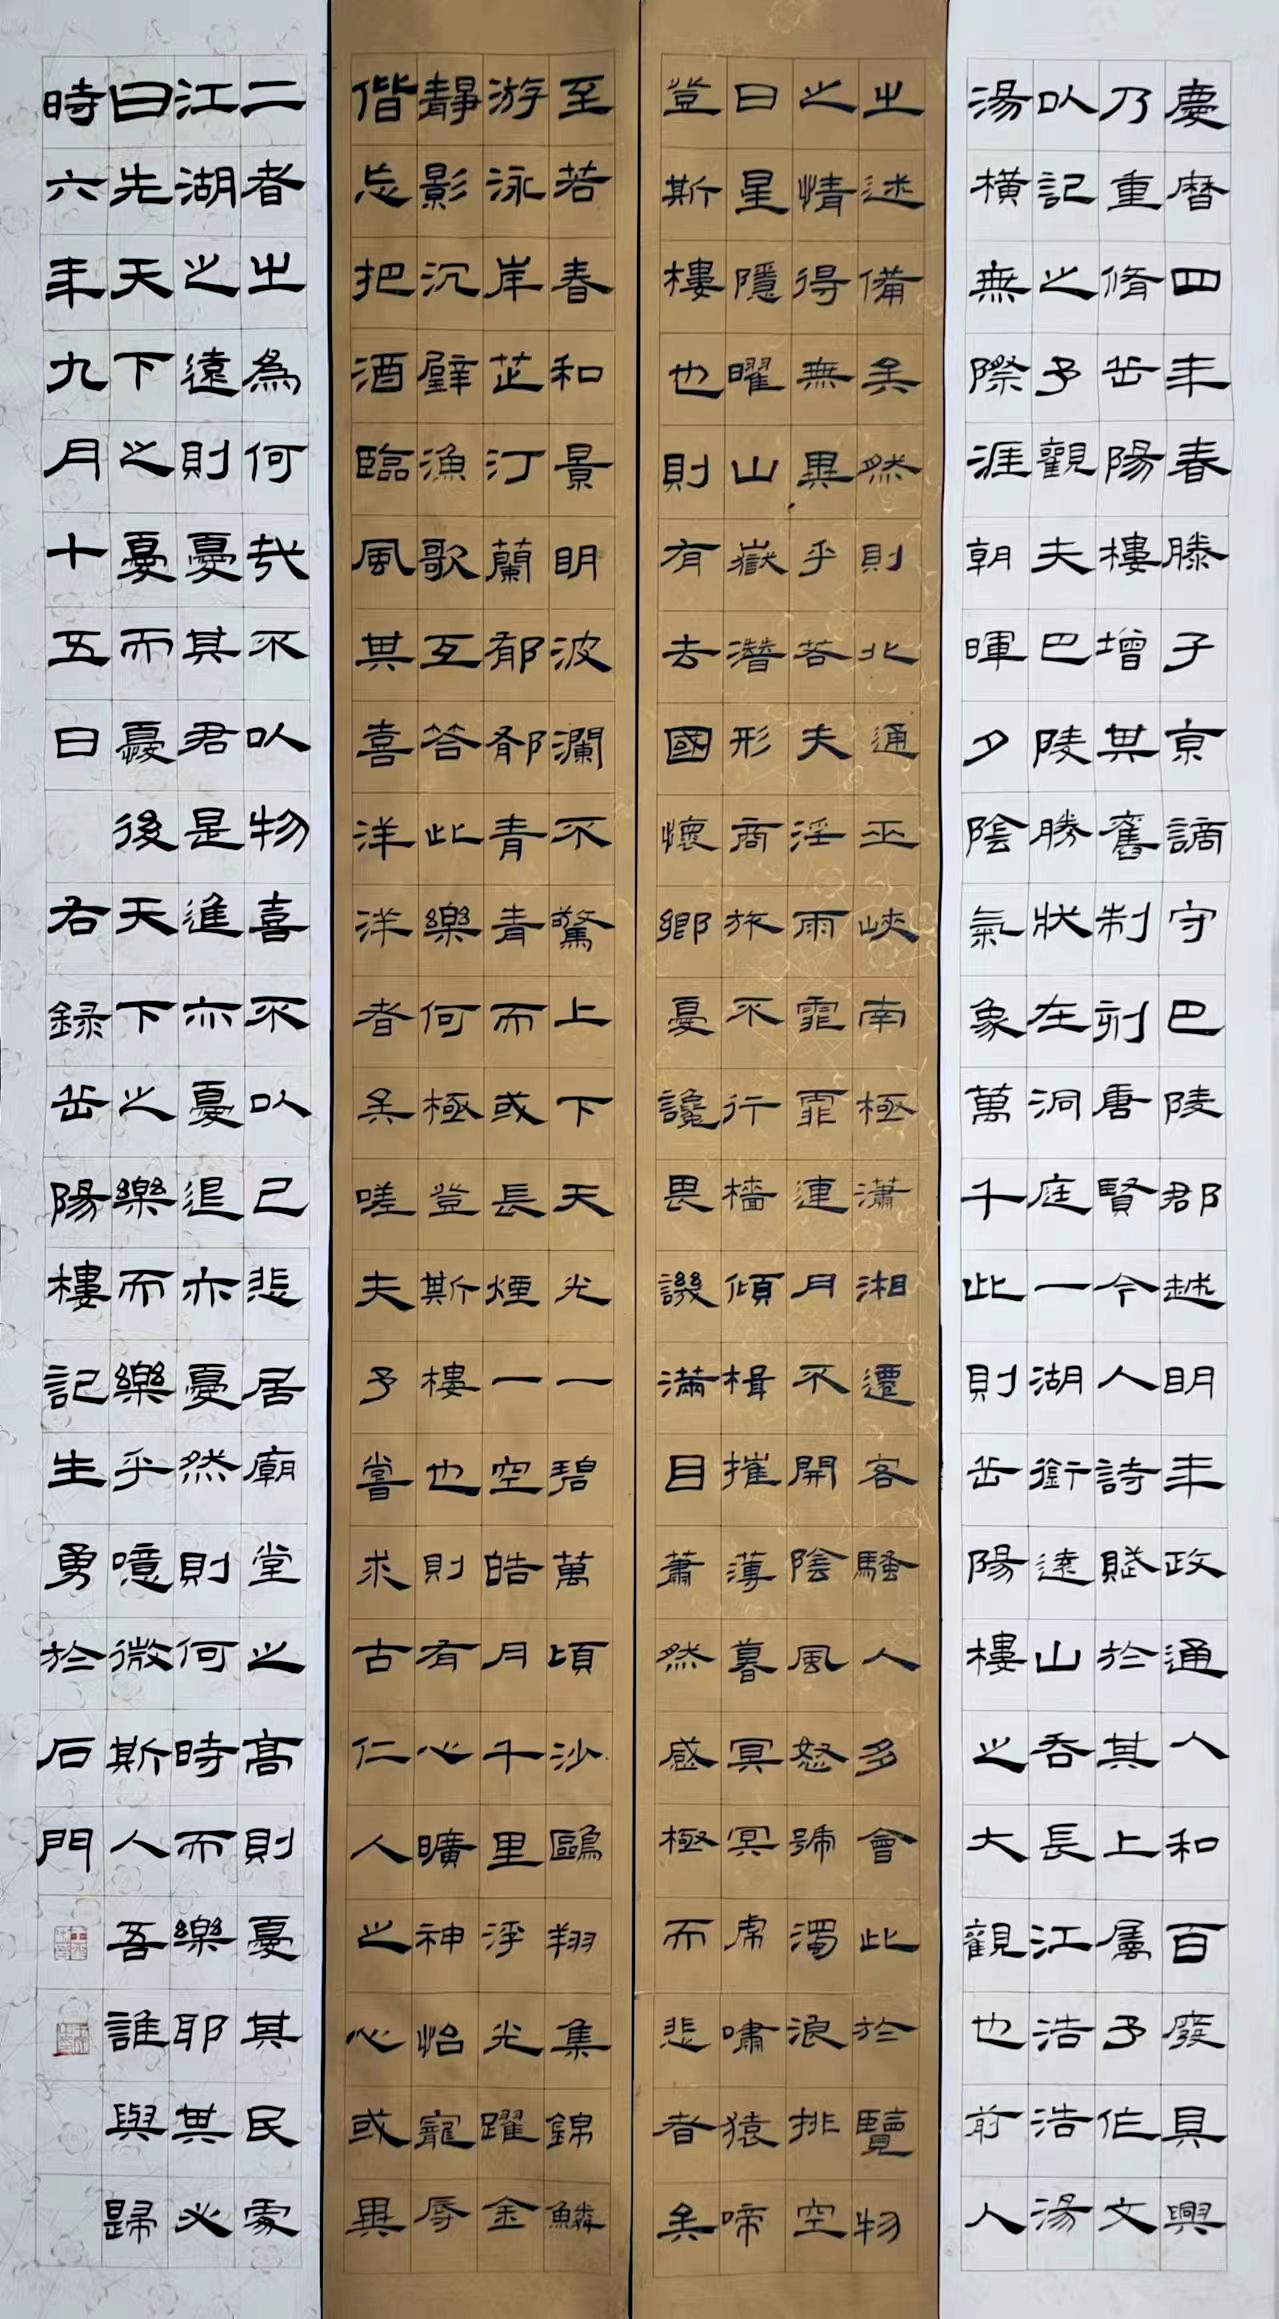 慶暦四年春滕子京謫守巴陵郡越明年政通人和百廢具興
乃重脩岳陽樓增其舊制刻唐賢今人詩賦於其上屬予作文
以記之予觀夫巴陵勝狀在洞庭一湖銜遠山吞長江浩浩湯
湯橫無際涯朝暉夕陰氣象萬千此則岳陽樓之大觀也前人
之述備矣然則北通巫峽南極瀟湘遷客騷人多會此於覽物
之情得無異乎若夫淫雨霏霏連月不開陰風怒號濁浪排空
日星隱曜山嶽潛形商旅不行檣傾楫摧薄暮冥冥虎嘯猿啼
登斯樓也則有去國懷鄉憂讒畏譏滿目蕭然感極而悲者矣
至若春和景明波瀾不驚上下天光一碧萬頃沙鷗翔集錦鱗
游泳岸芷汀蘭郁郁青青而或長煙一空皓月千里浮光躍金
靜影沉璧漁歌互答此樂何極登斯樓也則有心曠神怡寵辱
偕忘把酒臨風其喜洋洋者矣嗟夫予嘗求古仁人之心或異
二者之為何哉不以物喜不以己悲居廟堂之高則憂其民處
江湖之遠則憂其君是進亦憂退亦憂然則何時而樂耶其必
曰先天下之憂而憂後天下之樂而樂乎噫微斯人吾誰與歸
時六年九月十五日 右錄岳陽樓記生勇於石門